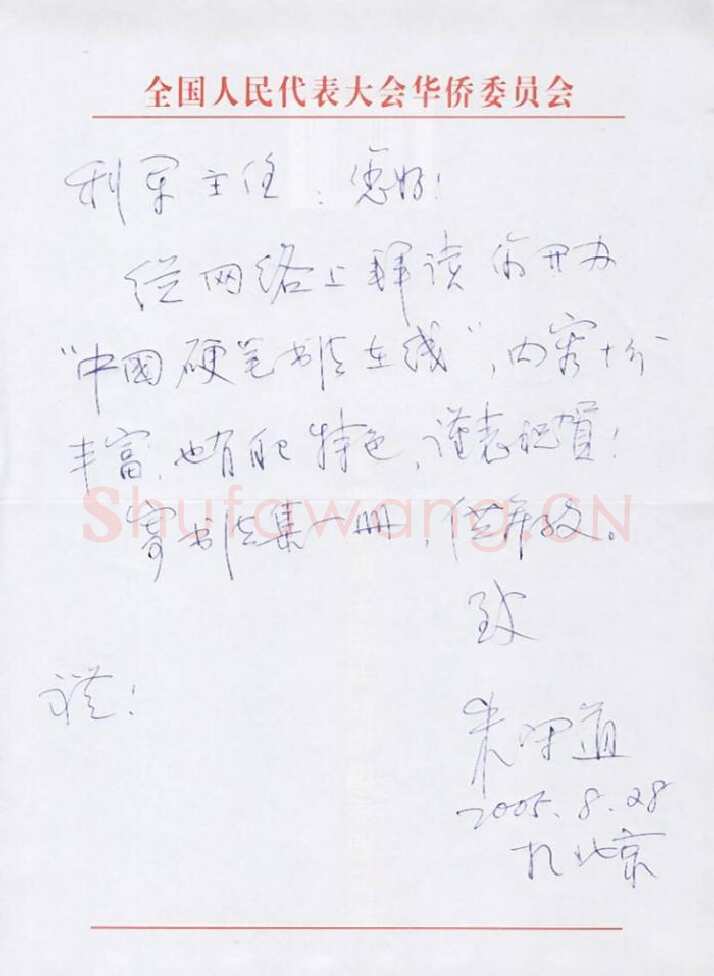 全国人民代表大会华侨委员会
利军主任：您好！
从网络上拜读 您开办
“中國硬笔书法在线”，内容十分
丰富，也有 特色，谨表祝賀！
Shufawang.CN
寄书法集一册，供
致
礼！
朱守道
2005.8.28
于北京